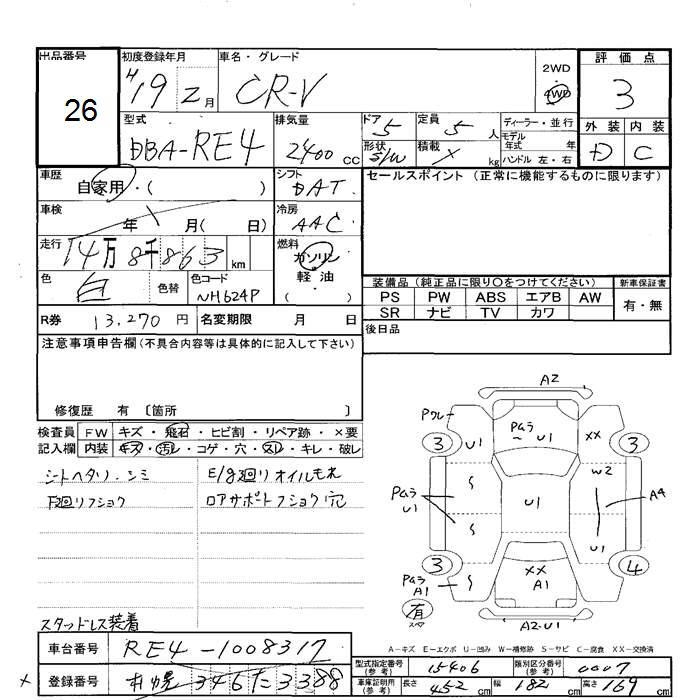 出品番号
26
初度登録年月
H19 2月
車名・グレード
CR-V
2WD
4WD
評価点
3
外装 内装
D C
型式
DBA-RE4
排気量
2400 cc
ドア 5
形状 S/W
定員 5 人
積載 × kg
ディーラー・並行
モデル年式 年
ハンドル 左・右
車歴
自家用・( )
シフト
DAT
セールスポイント (正常に機能するものに限ります)
車検
年 月( 日)
冷房
AAC
走行
14万8千863 km
燃料
ガソリン
軽油
( )
色
白
色替
色コード
NH624P
装備品 (純正品に限り○をつけてください)
新車保証書
PS PW ABS エアB AW
SR ナビ TV カワ
有・無
R券 13,270 円
名変期限 月 日
後日品
注意事項申告欄(不具合内容等は具体的に記入して下さい)
修復歴 有 〔箇所 〕
検査員記入欄
FW キズ・飛石・ヒビ割・リペア跡・×要
内装 キズ・汚レ・コゲ・穴・スレ・キレ・破レ
シートヘタリ、シミ
E/g廻りオイルモレ
下廻リフショク
ロアサポートフショク穴
スタッドレス装着
A2
Pクレー
Pムラ
~ U1
U1
XX
3
3
S
W2
Pムラ
U1
U1
A4
S
U1
3
4
Pムラ
A1
S
XX
A1
有
スペア
A2・U1
A-キズ E-エクボ U-凹み W-補修跡 S-サビ C-腐食 XX-交換済
車台番号 RE4-1008317
型式指定番号(参考) 15406
類別区分番号(参考) 0007
× 登録番号 札幌 346 た 3388
車庫証明用(参考) 長さ 452 cm 幅 182 cm 高さ 169 cm